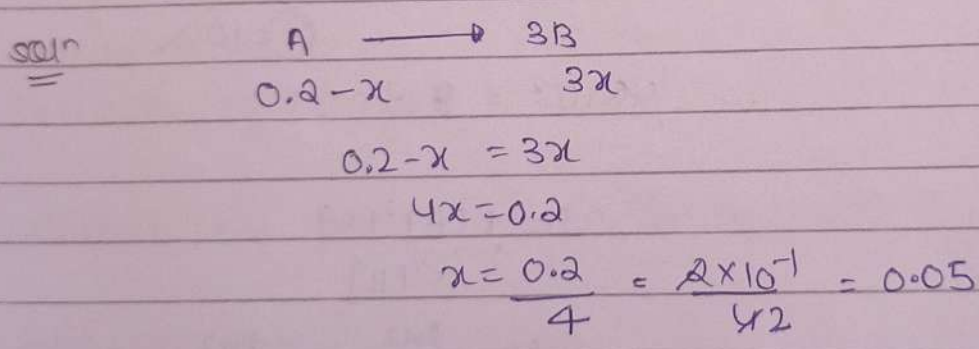 soln A → 3B
0.2-x 3x
0.2-x = 3x
4x = 0.2
x = 0.2/4 = 2×10⁻¹/42 = 0.05